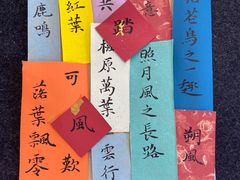 鹿鳴
紅葉
共
踏
意
落蒼鳥之一趣
松原萬葉
照月風之長路
落葉飄零
可
歎
風
雲行
朔風